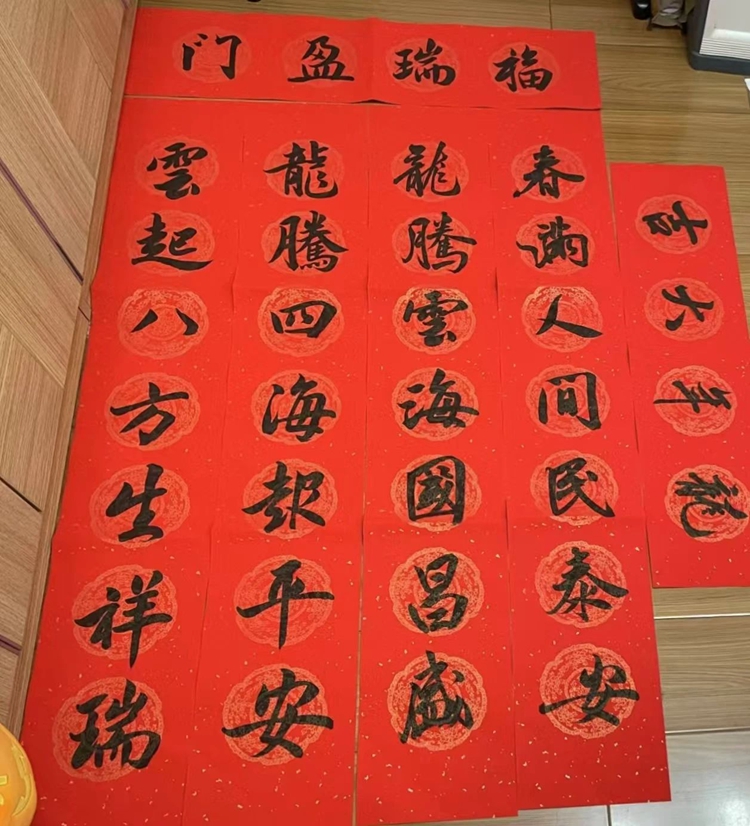 福瑞盈门
春滿人間民泰安
龍騰雲海國昌盛
龍騰四海報平安
雲起八方生祥瑞
龍年大吉